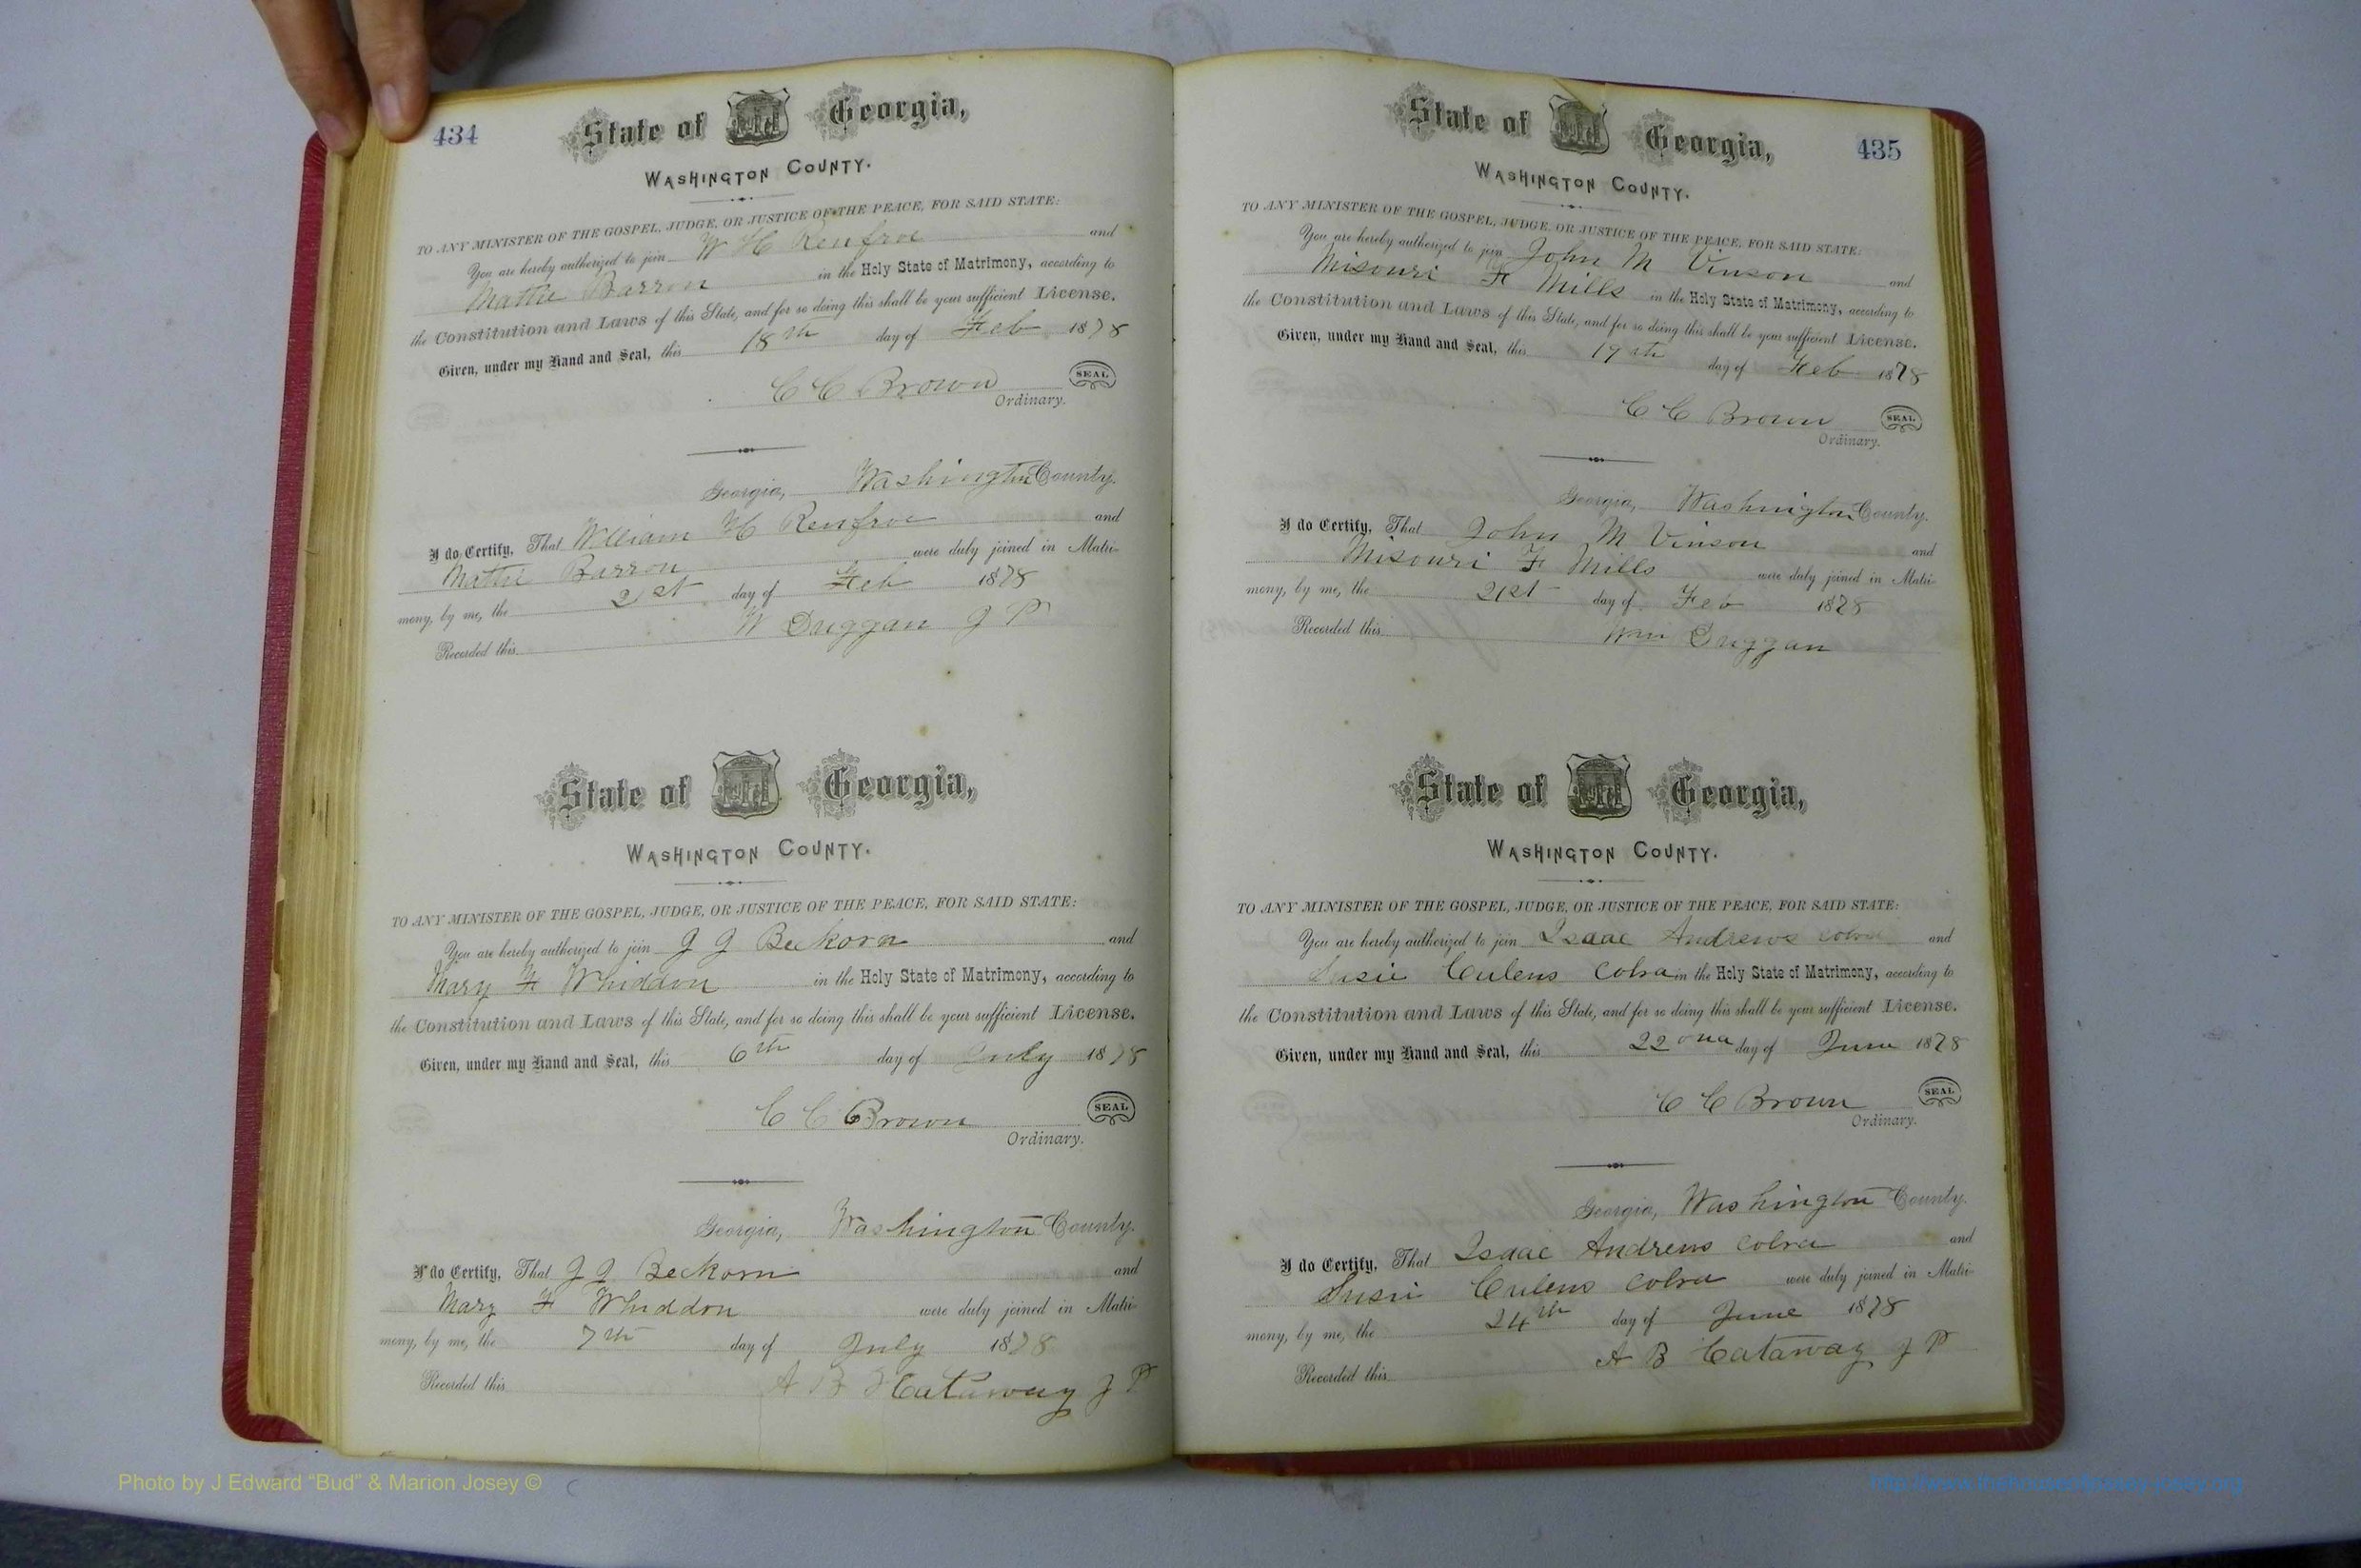 434
State of Georgia,
WASHINGTON COUNTY.
TO ANY MINISTER OF THE GOSPEL, JUDGE, OR JUSTICE OF THE PEACE, FOR SAID STATE:
You are hereby authorized to join W H Renfroe and
Mattie Barron in the Holy State of Matrimony, according to
the Constitution and Laws of this State, and for so doing this shall be your sufficient License.
Given, under my Hand and Seal, this 18th day of Feb 1878
C C Brown SEAL
Ordinary.
Georgia, Washington County.
I do Certify, That William H Renfroe and
Mattie Barron were duly joined in Matri-
mony, by me, the 21st day of Feb 1878
W Duggan J P
Recorded this
State of Georgia,
WASHINGTON COUNTY.
TO ANY MINISTER OF THE GOSPEL, JUDGE, OR JUSTICE OF THE PEACE, FOR SAID STATE:
You are hereby authorized to join J J Beckorn and
Mary F Whiddon in the Holy State of Matrimony, according to
the Constitution and Laws of this State, and for so doing this shall be your sufficient License.
Given, under my Hand and Seal, this 6th day of July 1878
C C Brown SEAL
Ordinary.
Georgia, Washington County.
I do Certify, That J J Beckorn and
Mary F Whiddon were duly joined in Matri-
mony, by me, the 7th day of July 1878
Recorded this A B Cataway J P
435
State of Georgia,
WASHINGTON COUNTY.
TO ANY MINISTER OF THE GOSPEL, JUDGE, OR JUSTICE OF THE PEACE, FOR SAID STATE:
You are hereby authorized to join John M Vinson and
Misouri F Mills in the Holy State of Matrimony, according to
the Constitution and Laws of this State, and for so doing this shall be your sufficient License.
Given, under my Hand and Seal, this 19th day of Feb 1878
C C Brown SEAL
Ordinary.
Georgia, Washington County.
I do Certify, That John M Vinson and
Misouri F Mills were duly joined in Matri-
mony, by me, the 21st day of Feb 1878
Recorded this Wm Duggan
State of Georgia,
WASHINGTON COUNTY.
TO ANY MINISTER OF THE GOSPEL, JUDGE, OR JUSTICE OF THE PEACE, FOR SAID STATE:
You are hereby authorized to join Isaac Andrews and
Susie Culens in the Holy State of Matrimony, according to
the Constitution and Laws of this State, and for so doing this shall be your sufficient License.
Given, under my Hand and Seal, this 22ond day of June 1878
C C Brown SEAL
Ordinary.
Georgia, Washington County.
I do Certify, That Isaac Andrews and
Susie Culens were duly joined in Matri-
mony, by me, the 24th day of June 1878
A B Cataway J P
Recorded this
Photo by J Edward “Bud” & Marion Josey ©